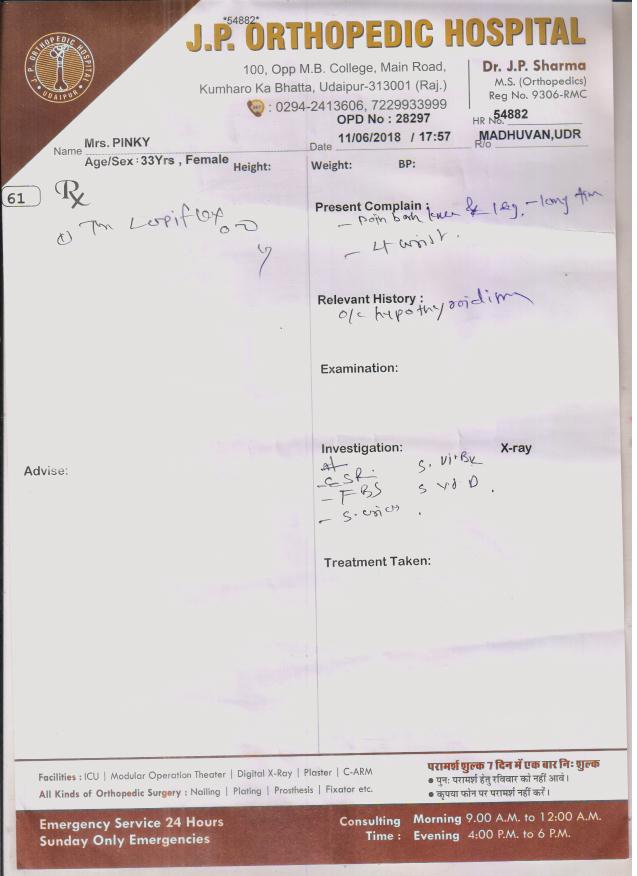 *54882*
J.P. ORTHOPEDIC HOSPITAL
J. P. ORTHOPEDIC HOSPITAL
UDAIPUR
100, Opp M.B. College, Main Road,
Kumharo Ka Bhatta, Udaipur-313001 (Raj.)
: 0294-2413606, 7229933999
Dr. J.P. Sharma
M.S. (Orthopedics)
Reg No. 9306-RMC
OPD No : 28297
HR No. 54882
Name Mrs. PINKY
Date 11/06/2018 / 17:57
R/o MADHUVAN,UDR
Age/Sex : 33Yrs , Female
Height:
Weight:
BP:
61
Rx
Present Complain :
- Pain both knee & leg. - long
- 4 wrist.
Relevant History :
o/c hypothyroidism
Examination:
Investigation:
X-ray
- ESR.
- FBS
S Vit D
Advise:
Treatment Taken:
Facilities : ICU | Modular Operation Theater | Digital X-Ray | Plaster | C-ARM
All Kinds of Orthopedic Surgery : Nailing | Plating | Prosthesis | Fixator etc.
परामर्श शुल्क 7 दिन में एक बार निः शुल्क
• पुनः परामर्श हेतु रविवार को नहीं आवें।
• कृपया फोन पर परामर्श नहीं करें।
Emergency Service 24 Hours
Sunday Only Emergencies
Consulting Time :
Morning 9.00 A.M. to 12:00 A.M.
Evening 4:00 P.M. to 6 P.M.